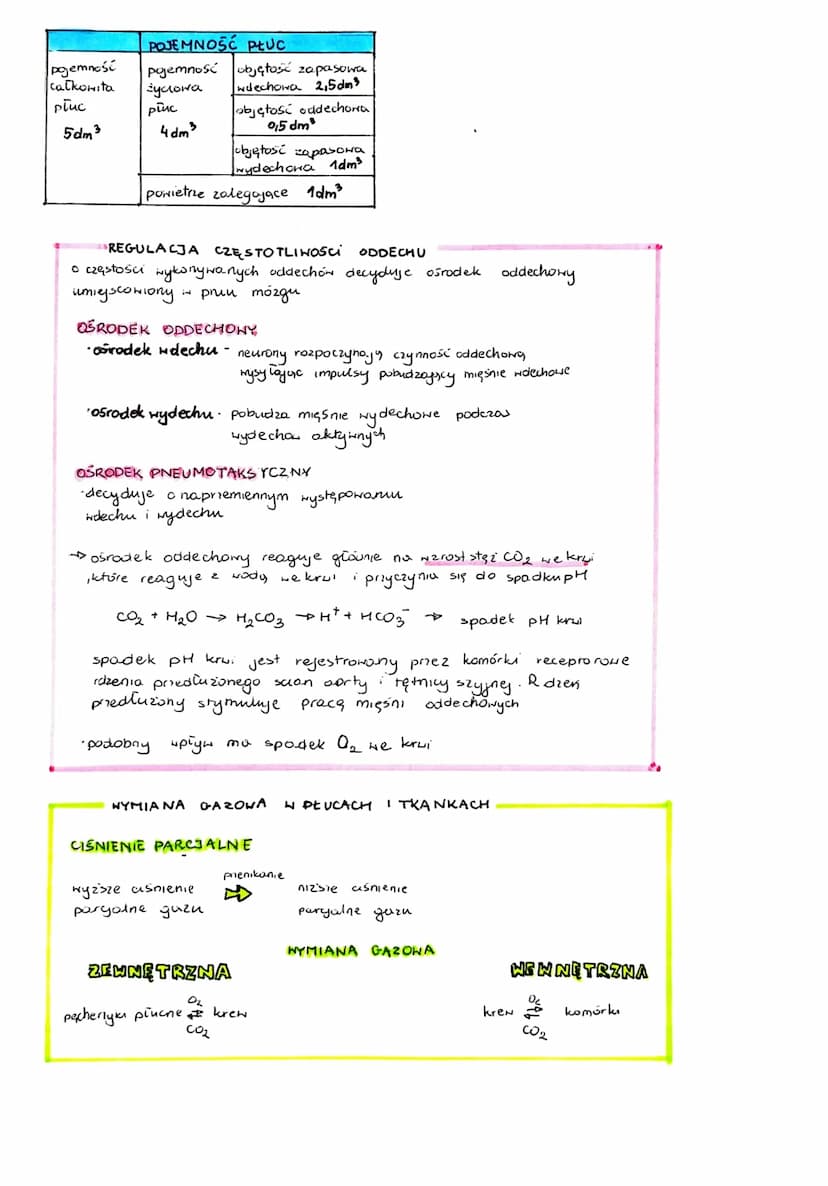 POJEMNOŚĆ PŁUC
pojemność
całkowita
płuc
5dm³
pojemność
życiowa
płuc
4dm³
objętość zapasowa
wdechowa 2,5dm³
objętość oddechowa
0,5 dm³
objętość zapasowa
wydechowa 1dm³
powietrze zalegające 1dm³
REGULACJA CZĘSTOTLIWOŚCI ODDECHU
o częstości wykonywanych oddechów decyduje ośrodek oddechowy
umiejscowiony w pniu mózgu
OŚRODEK ODDECHOWY
·ośrodek wdechu - neurony rozpoczynają czynność oddechową
wysyłając impulsy pobudzający mięśnie wdechowe
·ośrodek wydechu· pobudza mięśnie wydechowe podczas
wydechów aktywnych
OŚRODEK PNEUMOTAKSYCZNY
·decyduje o naprzemiennym występowaniu
wdechu i wydechu
→ ośrodek oddechowy reaguje głównie na wzrost stęż CO₂ we krwi
,które reaguje z wodą we krwi i przyczynia się do spadku pH
CO₂ + H₂O → H₂CO₃ → H⁺ + HCO₃⁻ → spadek pH krwi
spadek pH krwi jest rejestrowany przez komórki receprorowe
rdzenia przedłużonego scian aorty i tętnicy szyjnej. Rdzeń
przedłużony stymuluje pracę mięśni oddechowych
·podobny wpływ ma spadek O₂ we krwi
WYMIANA GAZOWA W PŁUCACH I TKANKACH
CIŚNIENIE PARCJALNE
wyższe ciśnienie
parcjalne gazu
przenikanie
⇒
niższe ciśnienie
parcjalne gazu
WYMIANA GAZOWA
ZEWNĘTRZNA
WEWNĘTRZNA
O₂
pęcherzyki płucne ⇄ krew
CO₂
O₂
krew ⇄ komórki
CO₂